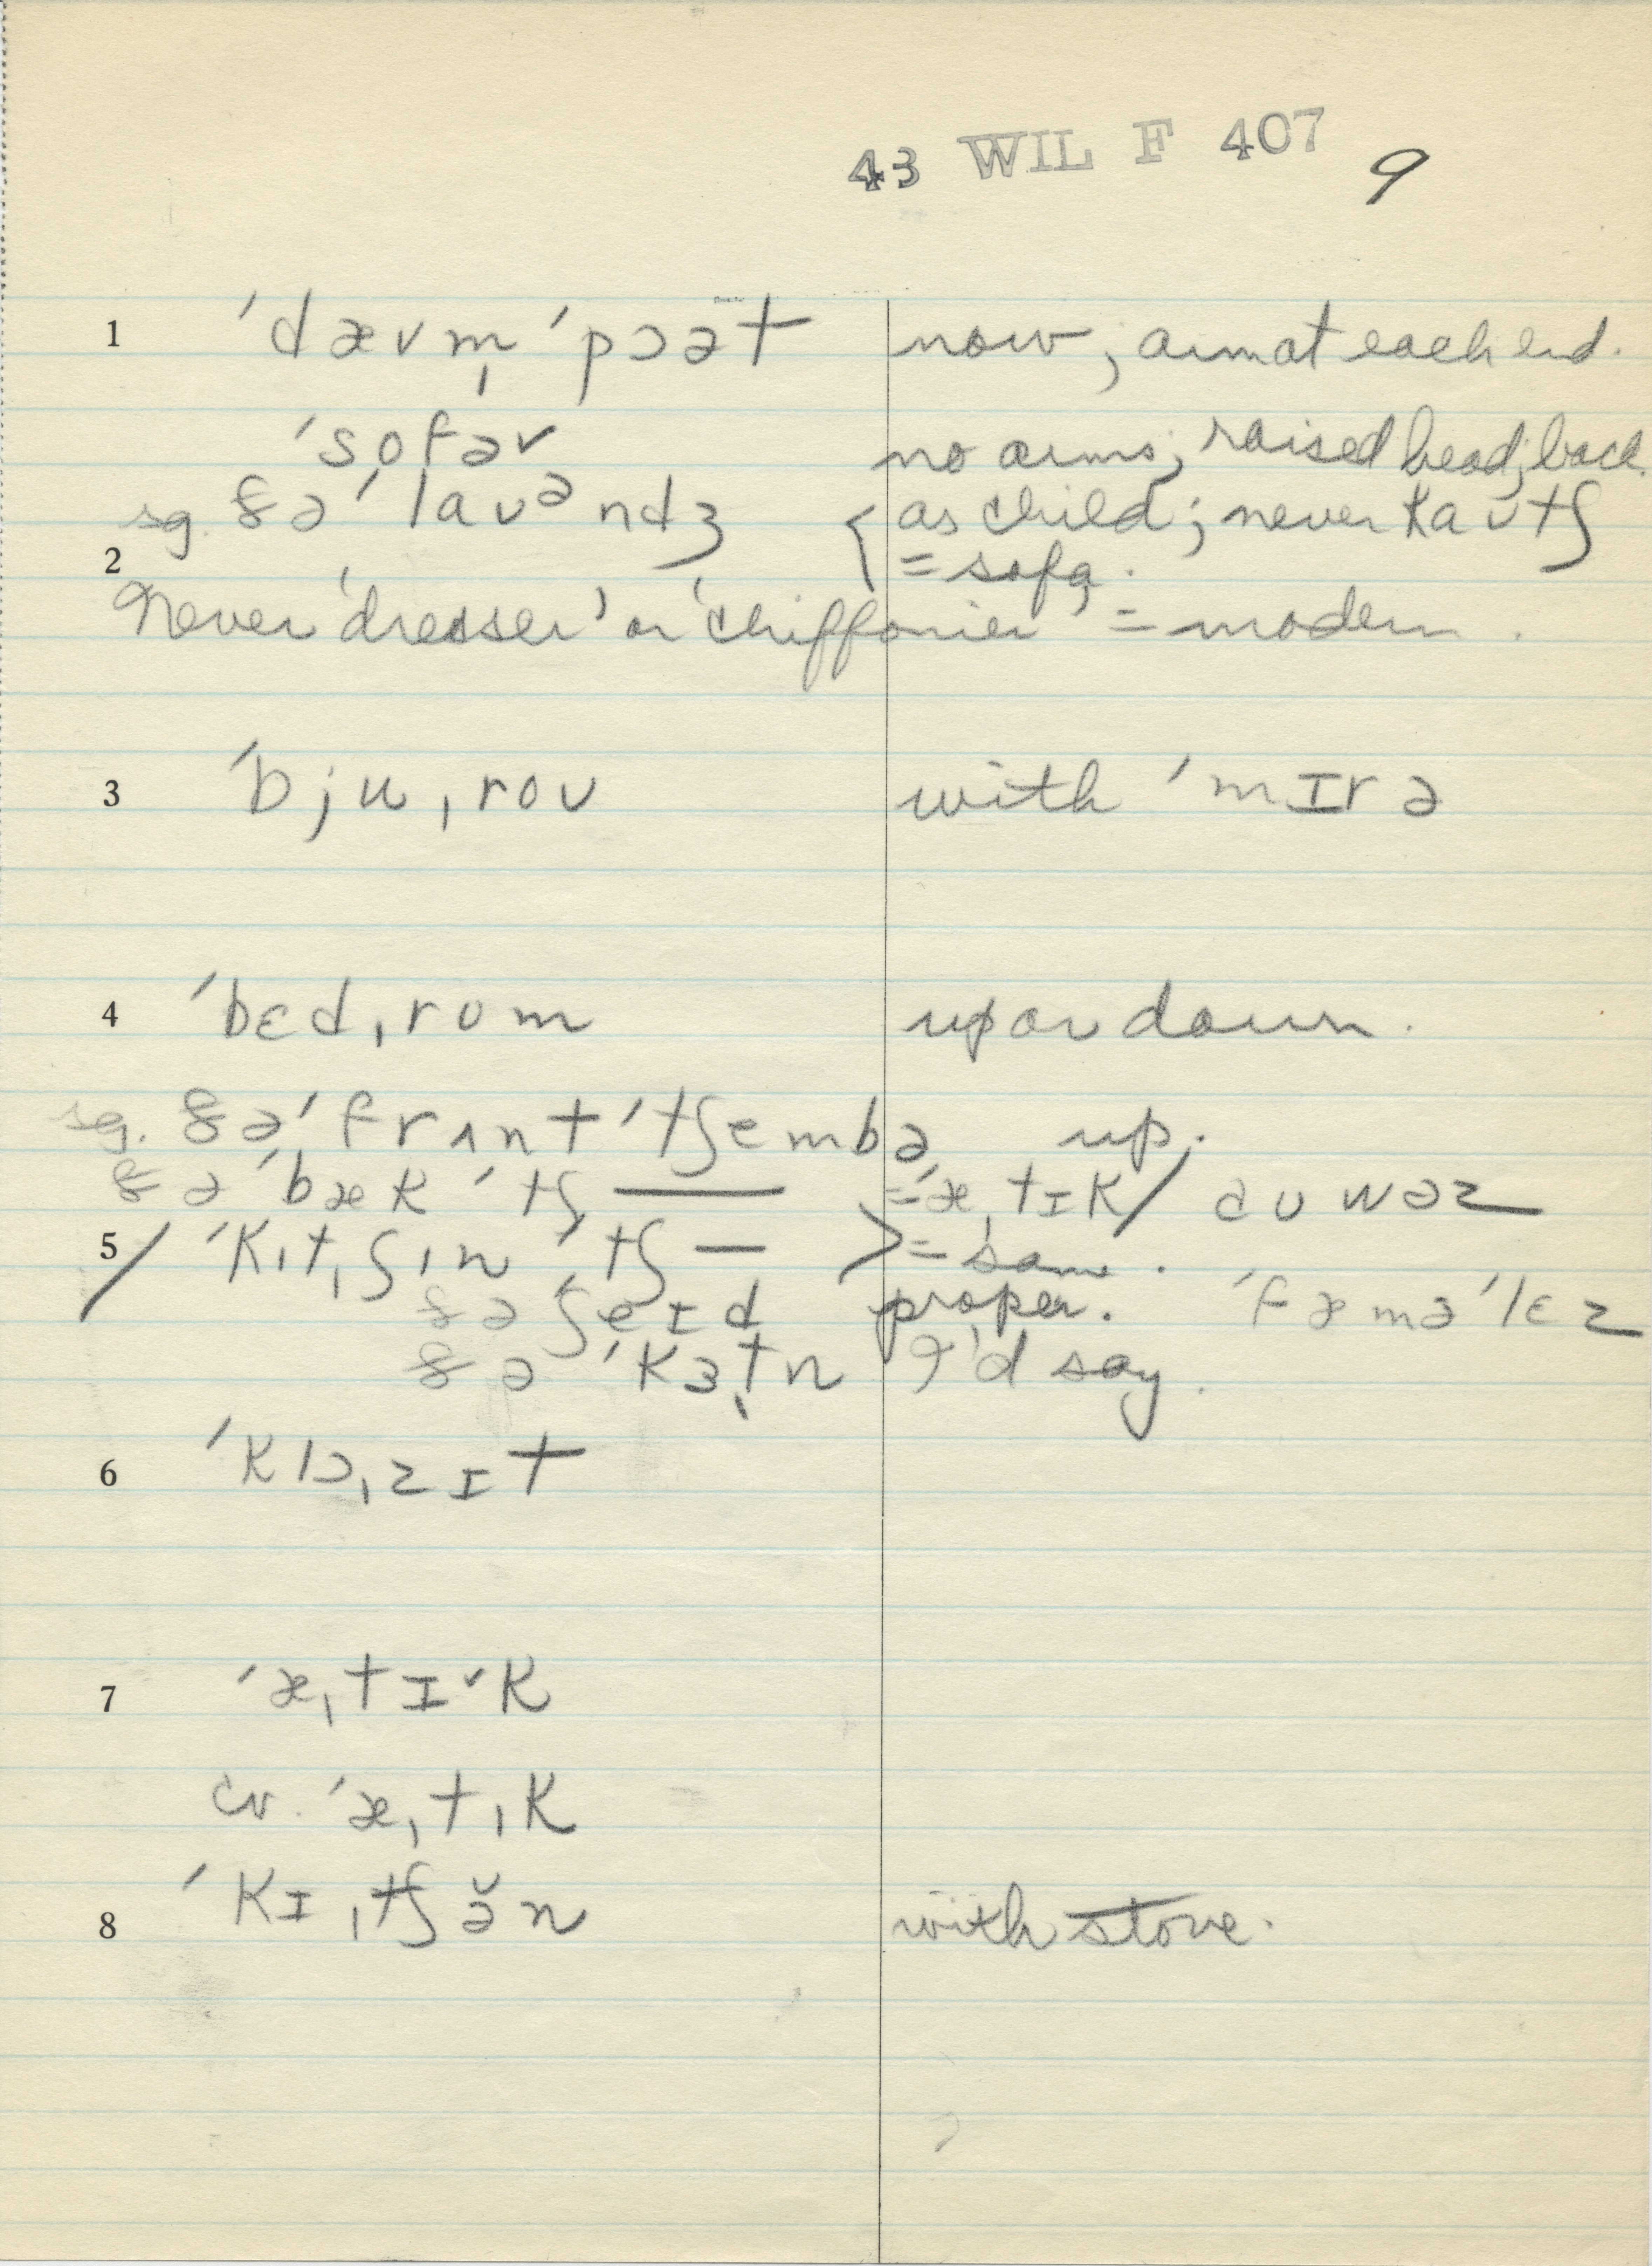 43 WIL F 407 9
1 ˈdævm̩ ˈpɔət now; arm at each end.
ˈsofə˅ no arms; raised head; back.
sg. ðə ˈlaʊᵊndʒ { as child; never kaʊtʃ
2 = sofa.
Never 'dresser' or 'chiffonier' = modern.
3 ˈbjuˌroʊ with ˈmɪrə
4 ˈbɛdˌrʊm up or down.
sg. ðə ˈfrʌnt ˈtʃembə up.
ðə ˈbæk ˈtʃ — = ˈæˌtɪk / aʊwəz
5 / ˈkɪtˌʃɪn ˈtʃ — > = same.
ðə ʃeɪd proper. ˈfæməˈlɛz
ðə ˈkɜtn̩ I'd say.
6 ˈklɔˌzɪt
7 ˈæˌtɪ˅k
cv. ˈæˌtɪk
8 ˈkɪˌtʃə̆n with stove.